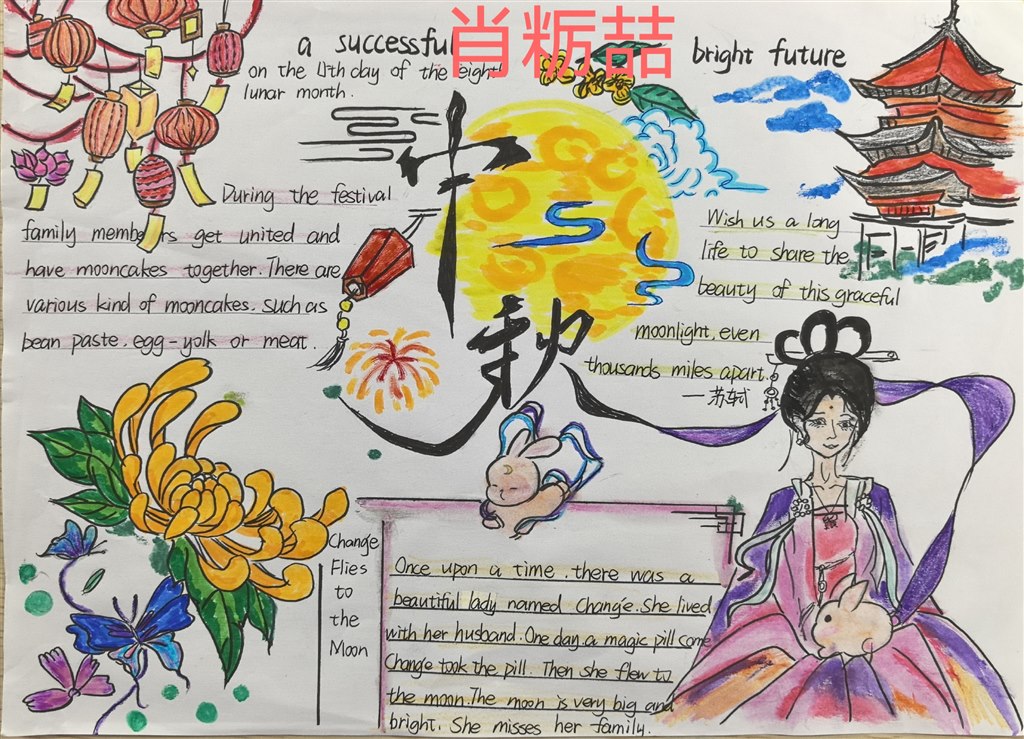 肖粝喆
a successful
bright future
on the 4th day of the eighth
lunar month.
中秋
During the festival
family members get united and
have mooncakes together. There are
various kind of mooncakes. such as
bean paste. egg-yolk or meat.
Wish us a long
life to share the
beauty of this graceful
moonlight, even
thousands miles apart.
—苏轼
Change
Flies
to
the
Moon
Once upon a time. there was a
beautiful lady named Chang'e. She lived
with her husband. One day. a magic pill come
Change took the pill. Then she flew to
the moon. The moon is very big and
bright. She misses her family.